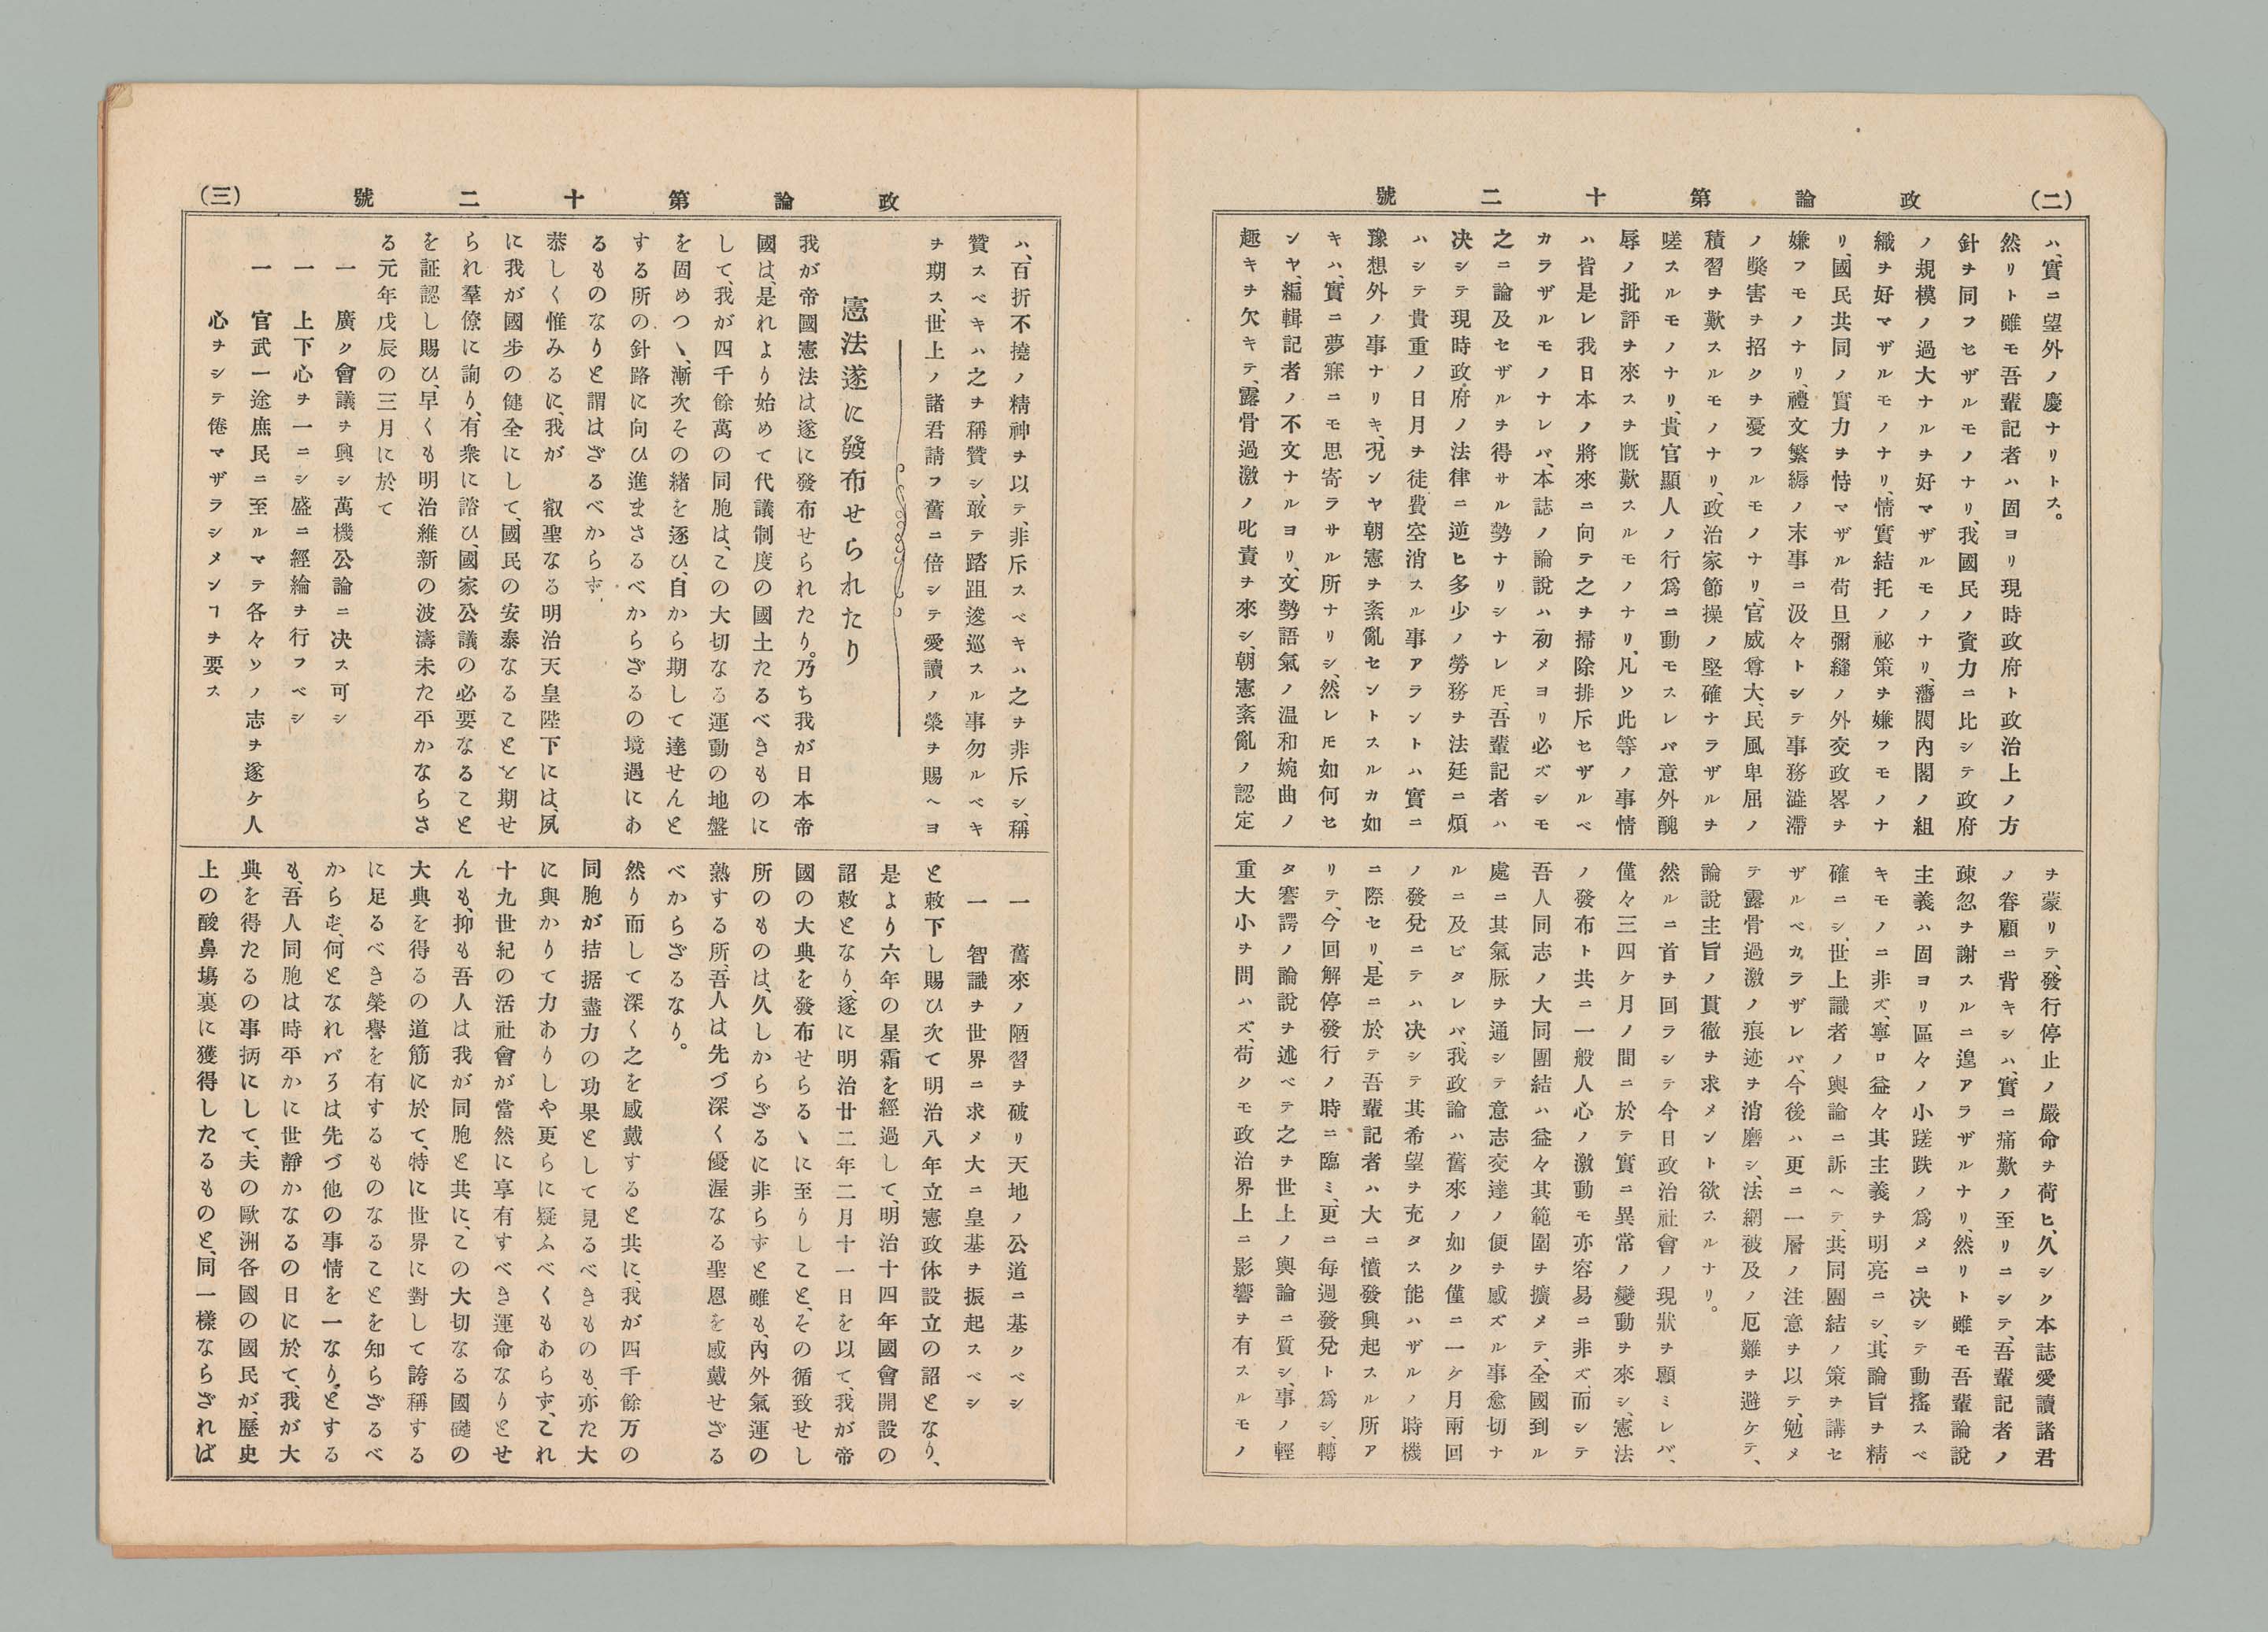 (二)
政論第十二號
ハ、實ニ望外ノ慶ナリトス。
然リト雖モ吾輩記者ハ固ヨリ現時政府ト政治上ノ方
針ヲ同フセザルモノナリ、我國民ノ資力ニ比シテ政府
ノ規模ノ過大ナルヲ好マザルモノナリ、藩閥內閣ノ組
織ヲ好マザルモノナリ、情實結托ノ祕策ヲ嫌フモノナ
リ、國民共同ノ實力ヲ恃マザル苟旦彌縫ノ外交政畧ヲ
嫌フモノナリ、禮文繁縟ノ末事ニ汲々トシテ事務澁滯
ノ獘害ヲ招クヲ憂フルモノナリ、官威尊大、民風卑屈ノ
積習ヲ歎スルモノナリ、政治家節操ノ堅確ナラザルヲ
嗟スルモノナリ、貴官顯人ノ行爲ニ動モスレバ意外醜
辱ノ批評ヲ來スヲ慨歎スルモノナリ、凡ソ此等ノ事情
ハ皆是レ我日本ノ將來ニ向テ之ヲ掃除排斥セザルベ
カラザルモノナレバ、本誌ノ論說ハ初メヨリ必ズシモ
之ニ論及セザルヲ得サル勢ナリシナレ𪜈、吾輩記者ハ
决シテ現時政府ノ法律ニ逆ヒ多少ノ勞務ヲ法廷ニ煩
ハシテ貴重ノ日月ヲ徒費空消スル事アラントハ實ニ
豫想外ノ事ナリキ、况ンヤ朝憲ヲ紊亂セントスルカ如
キハ、實ニ夢寐ニモ思寄ラサル所ナリシ、然レ𪜈如何セ
ンヤ、編輯記者ノ不文ナルヨリ、文勢語氣ノ温和婉曲ノ
趣キヲ欠キテ、露骨過激ノ叱責ヲ來シ、朝憲紊亂ノ認定
ヲ蒙リテ、發行停止ノ嚴命ヲ荷ヒ、久シク本誌愛讀諸君
ノ眷顧ニ背キシハ、實ニ痛歎ノ至リニシテ、吾輩記者ノ
疎忽ヲ謝スルニ遑アラザルナリ、然リト雖モ吾輩論說
主義ハ固ヨリ區々ノ小蹉跌ノ爲メニ决シテ動搖スベ
キモノニ非ズ、寧ロ益々其主義ヲ明亮ニシ、其論旨ヲ精
確ニシ、世上識者ノ輿論ニ訴ヘテ、共同團結ノ策ヲ講セ
ザルベカラザレバ、今後ハ更ニ一層ノ注意ヲ以テ、勉メ
テ露骨過激ノ痕迹ヲ消磨シ、法網被及ノ厄難ヲ避ケテ、
論說主旨ノ貫徹ヲ求メント欲スルナリ。
然ルニ首ヲ回ラシテ今日政治社會ノ現狀ヲ顧ミレバ、
僅々三四ケ月ノ間ニ於テ實ニ異常ノ變動ヲ來シ、憲法
ノ發布ト共ニ一般人心ノ激動モ亦容易ニ非ズ、而シテ
吾人同志ノ大同團結ハ益々其範圍ヲ擴メテ、全國到ル
處ニ其氣脉ヲ通シテ意志交達ノ便ヲ感ズル事愈切ナ
ルニ及ビタレバ、我政論ハ舊來ノ如ク僅ニ一ケ月兩回
ノ發兌ニテハ决シテ其希望ヲ充タス能ハザルノ時機
ニ際セリ、是ニ於テ吾輩記者ハ大ニ憤發興起スル所ア
リテ、今回解停發行ノ時ニ臨ミ、更ニ每週發兌ト爲シ、轉
タ謇諤ノ論說ヲ述ベテ之ヲ世上ノ輿論ニ質シ、事ノ輕
重大小ヲ問ハズ、苟クモ政治界上ニ影響ヲ有スルモノ
政論第十二號
(三)
ハ、百折不撓ノ精神ヲ以テ、非斥スベキハ之ヲ非斥シ、稱
贊スベキハ之ヲ稱贊シ、敢テ踏跙逡巡スル事勿ルベキ
ヲ期ス、世上ノ諸君請フ舊ニ倍シテ愛讀ノ榮ヲ賜ヘヨ
憲法遂に發布せられたり
我が帝國憲法は遂に發布せられたり。乃ち我が日本帝
國は、是れより始めて代議制度の國土たるべきものに
して、我が四千餘萬の同胞は、この大切なる運動の地盤
を固めつヽ、漸次その緒を逐ひ、自から期して達せんと
する所の針路に向ひ進まさるべからざるの境遇にあ
るものなりと謂はざるべからず、
恭しく惟みるに、我が　叡聖なる明治天皇陛下には、夙
に我が國步の健全にして、國民の安泰なることを期せ
られ羣僚に詢り、有衆に諮ひ、國家公議の必要なること
を証認し賜ひ、早くも明治維新の波濤未た平かならさ
る元年戊辰の三月に於て
一　廣ク會議ヲ興シ萬機公論ニ决ス可シ
一　上下心ヲ一ニシ盛ニ經綸ヲ行フベシ
一　官武一途庶民ニ至ルマテ各々ソノ志ヲ遂ケ人
心ヲシテ倦マザラシメンヿヲ要ス
一　舊來ノ陋習ヲ破リ天地ノ公道ニ基クベシ
一　智識ヲ世界ニ求メ大ニ皇基ヲ振起スベシ
と敕下し賜ひ次て明治八年立憲政体設立の詔となり、
是より六年の星霜を經過して、明治十四年國會開設の
詔敕となり、遂に明治廿二年二月十一日を以て、我が帝
國の大典を發布せらるヽに至りしこと、その循致せし
所のものは、久しからざるに非らずと雖も、內外氣運の
熟する所、吾人は先づ深く優渥なる聖恩を感戴せざる
べからざるなり。
然り而して深く之を感戴すると共に、我が四千餘万の
同胞が拮据盡力の功果として見るべきものも、亦た大
に與かりて力ありしや更らに疑ふべくもあらず、これ
十九世紀の活社會が當然に享有すべき運命なりとせ
んも、抑も吾人は我が同胞と共に、この大切なる國礎の
大典を得るの道筋に於て、特に世界に對して誇稱する
に足るべき榮譽を有するものなることを知らざるべ
からず、何となれバろは先づ他の事情を一なりとする
も、吾人同胞は時平かに世靜かなるの日に於て、我が大
典を得たるの事柄にして、夫の歐洲各國の國民が、歷史
上の酸鼻塲裏に獲得したるものと、同一樣ならざれば